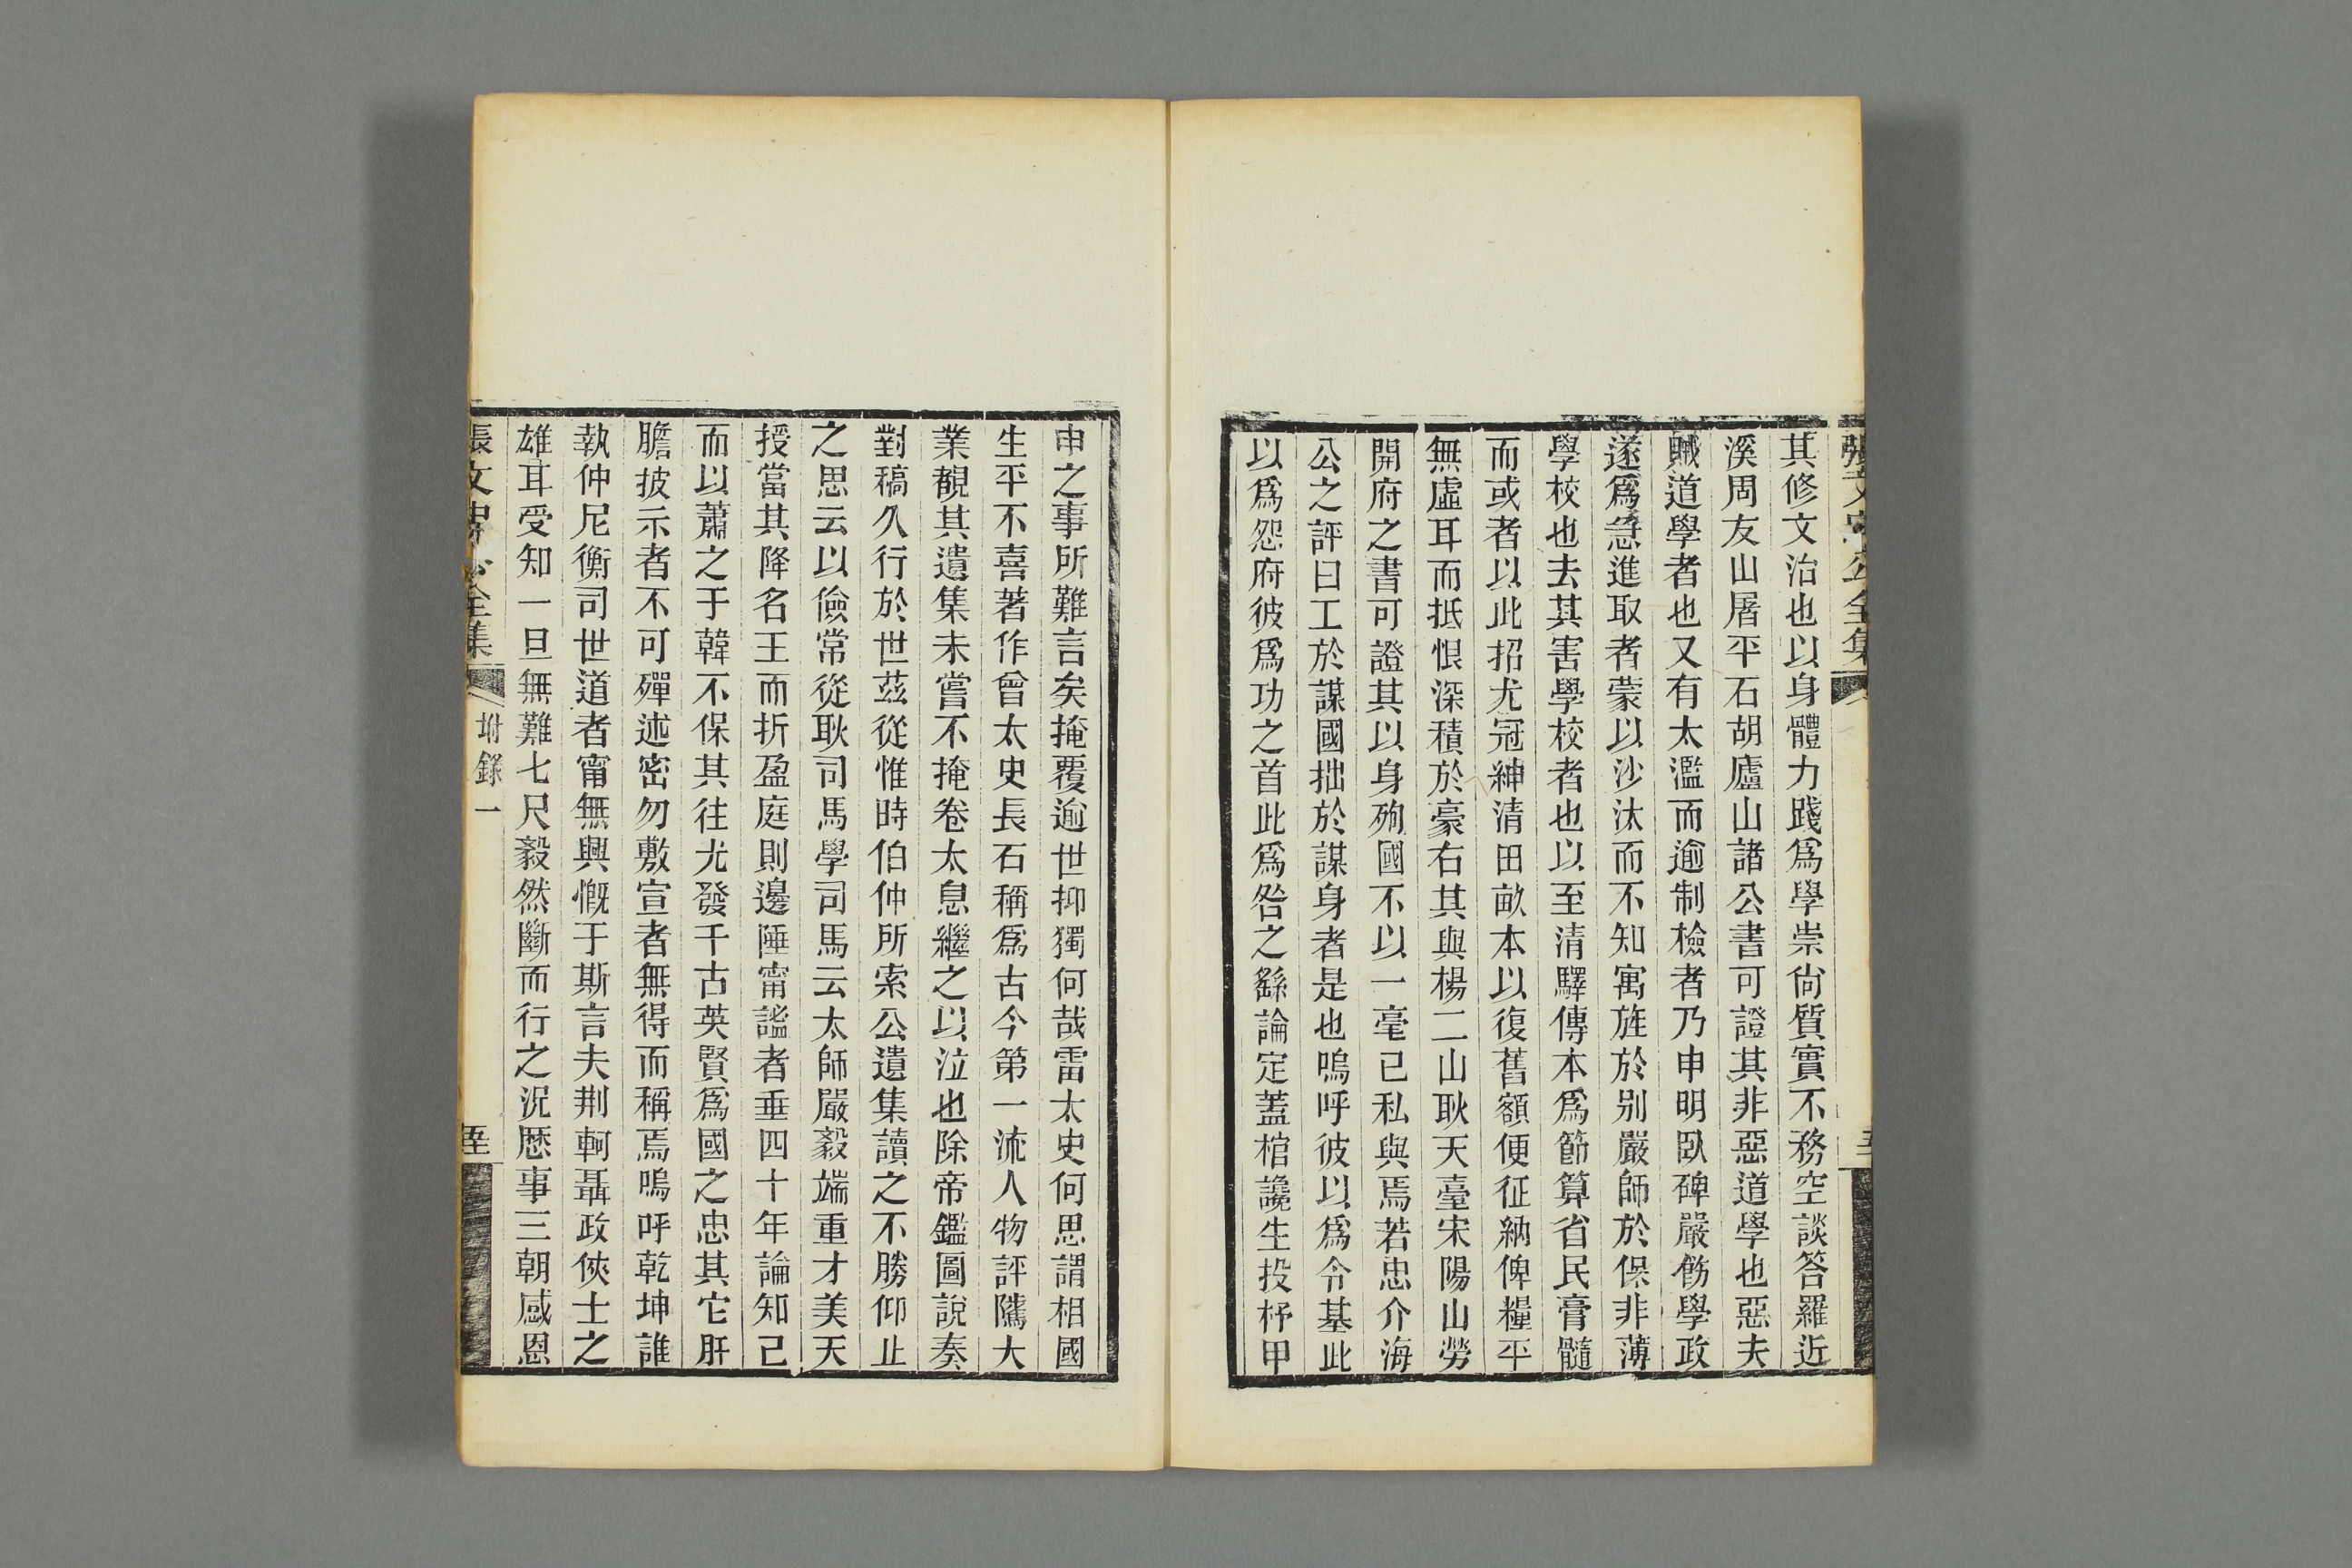 張文忠公全集
其修文治也以身體力踐爲學崇尙質實不務空談答羅近
溪周友山屠平石胡廬山諸公書可證其非惡道學也惡夫
賊道學者也又有太濫而逾制檢者乃申明臥碑嚴飭學政
遂爲急進取者蒙以沙汰而不知寓旌於别嚴師於保非薄
學校也去其害學校者也以至清驛傳本爲節算省民膏髓
而或者以此招尤冠紳清田畝本以復舊額便征納俾糧平
無虛耳而抵恨深積於豪右其與楊二山耿天臺宋陽山勞
開府之書可證其以身殉國不以一毫己私與焉若忠介海
公之評曰工於謀國拙於謀身者是也嗚呼彼以爲令基此
以爲怨府彼爲功之首此爲咎之繇論定蓋棺讒生投杼甲
申之事所難言矣掩覆逾世抑獨何哉雷太史何思謂相國
生平不喜著作曾太史長石稱爲古今第一流人物評隲大
業覩其遺集未嘗不掩卷太息繼之以泣也除帝鑑圖說奏
對稿久行於世茲從惟時伯仲所索公遺集讀之不勝仰止
之思云以儉常從耿司馬學司馬云太師嚴毅端重才美天
授當其降名王而折盈庭則邊陲甯謐者垂四十年論知己
而以蕭之于韓不保其往尤發千古英賢爲國之忠其它肝
膽披示者不可殫述密勿敷宣者無得而稱焉嗚呼乾坤誰
執仲尼衡司世道者甯無興慨于斯言夫荆軻聶政俠士之
雄耳受知一旦無難七尺毅然斷而行之況歷事三朝感恩
張文忠公全集 坿錄一